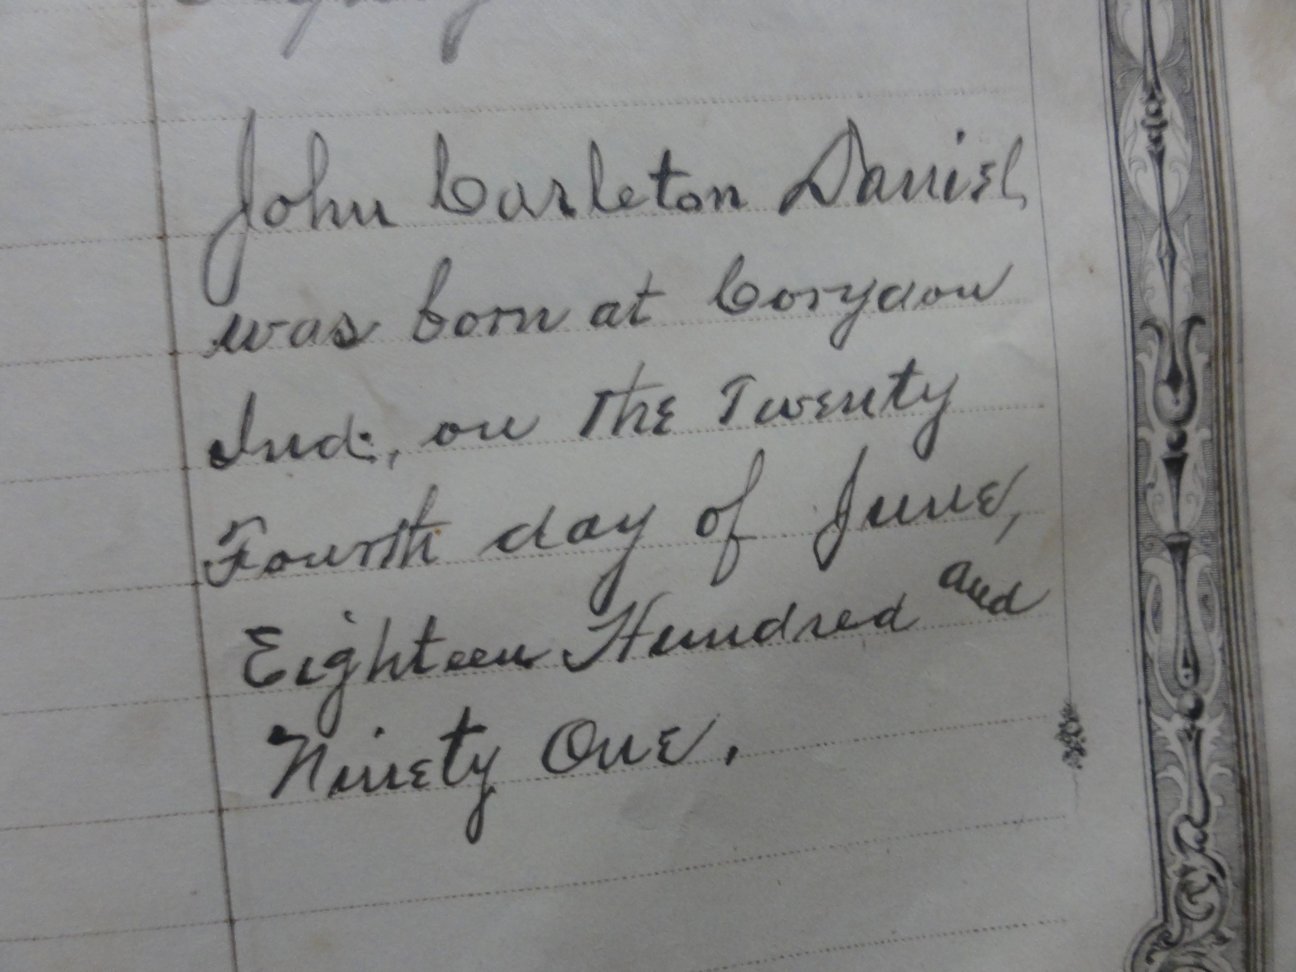 John Carleton Daniel,
was born at Corydon
Ind., on the Twenty
Fourth day of June,
Eighteen Hundred and
Ninety One.